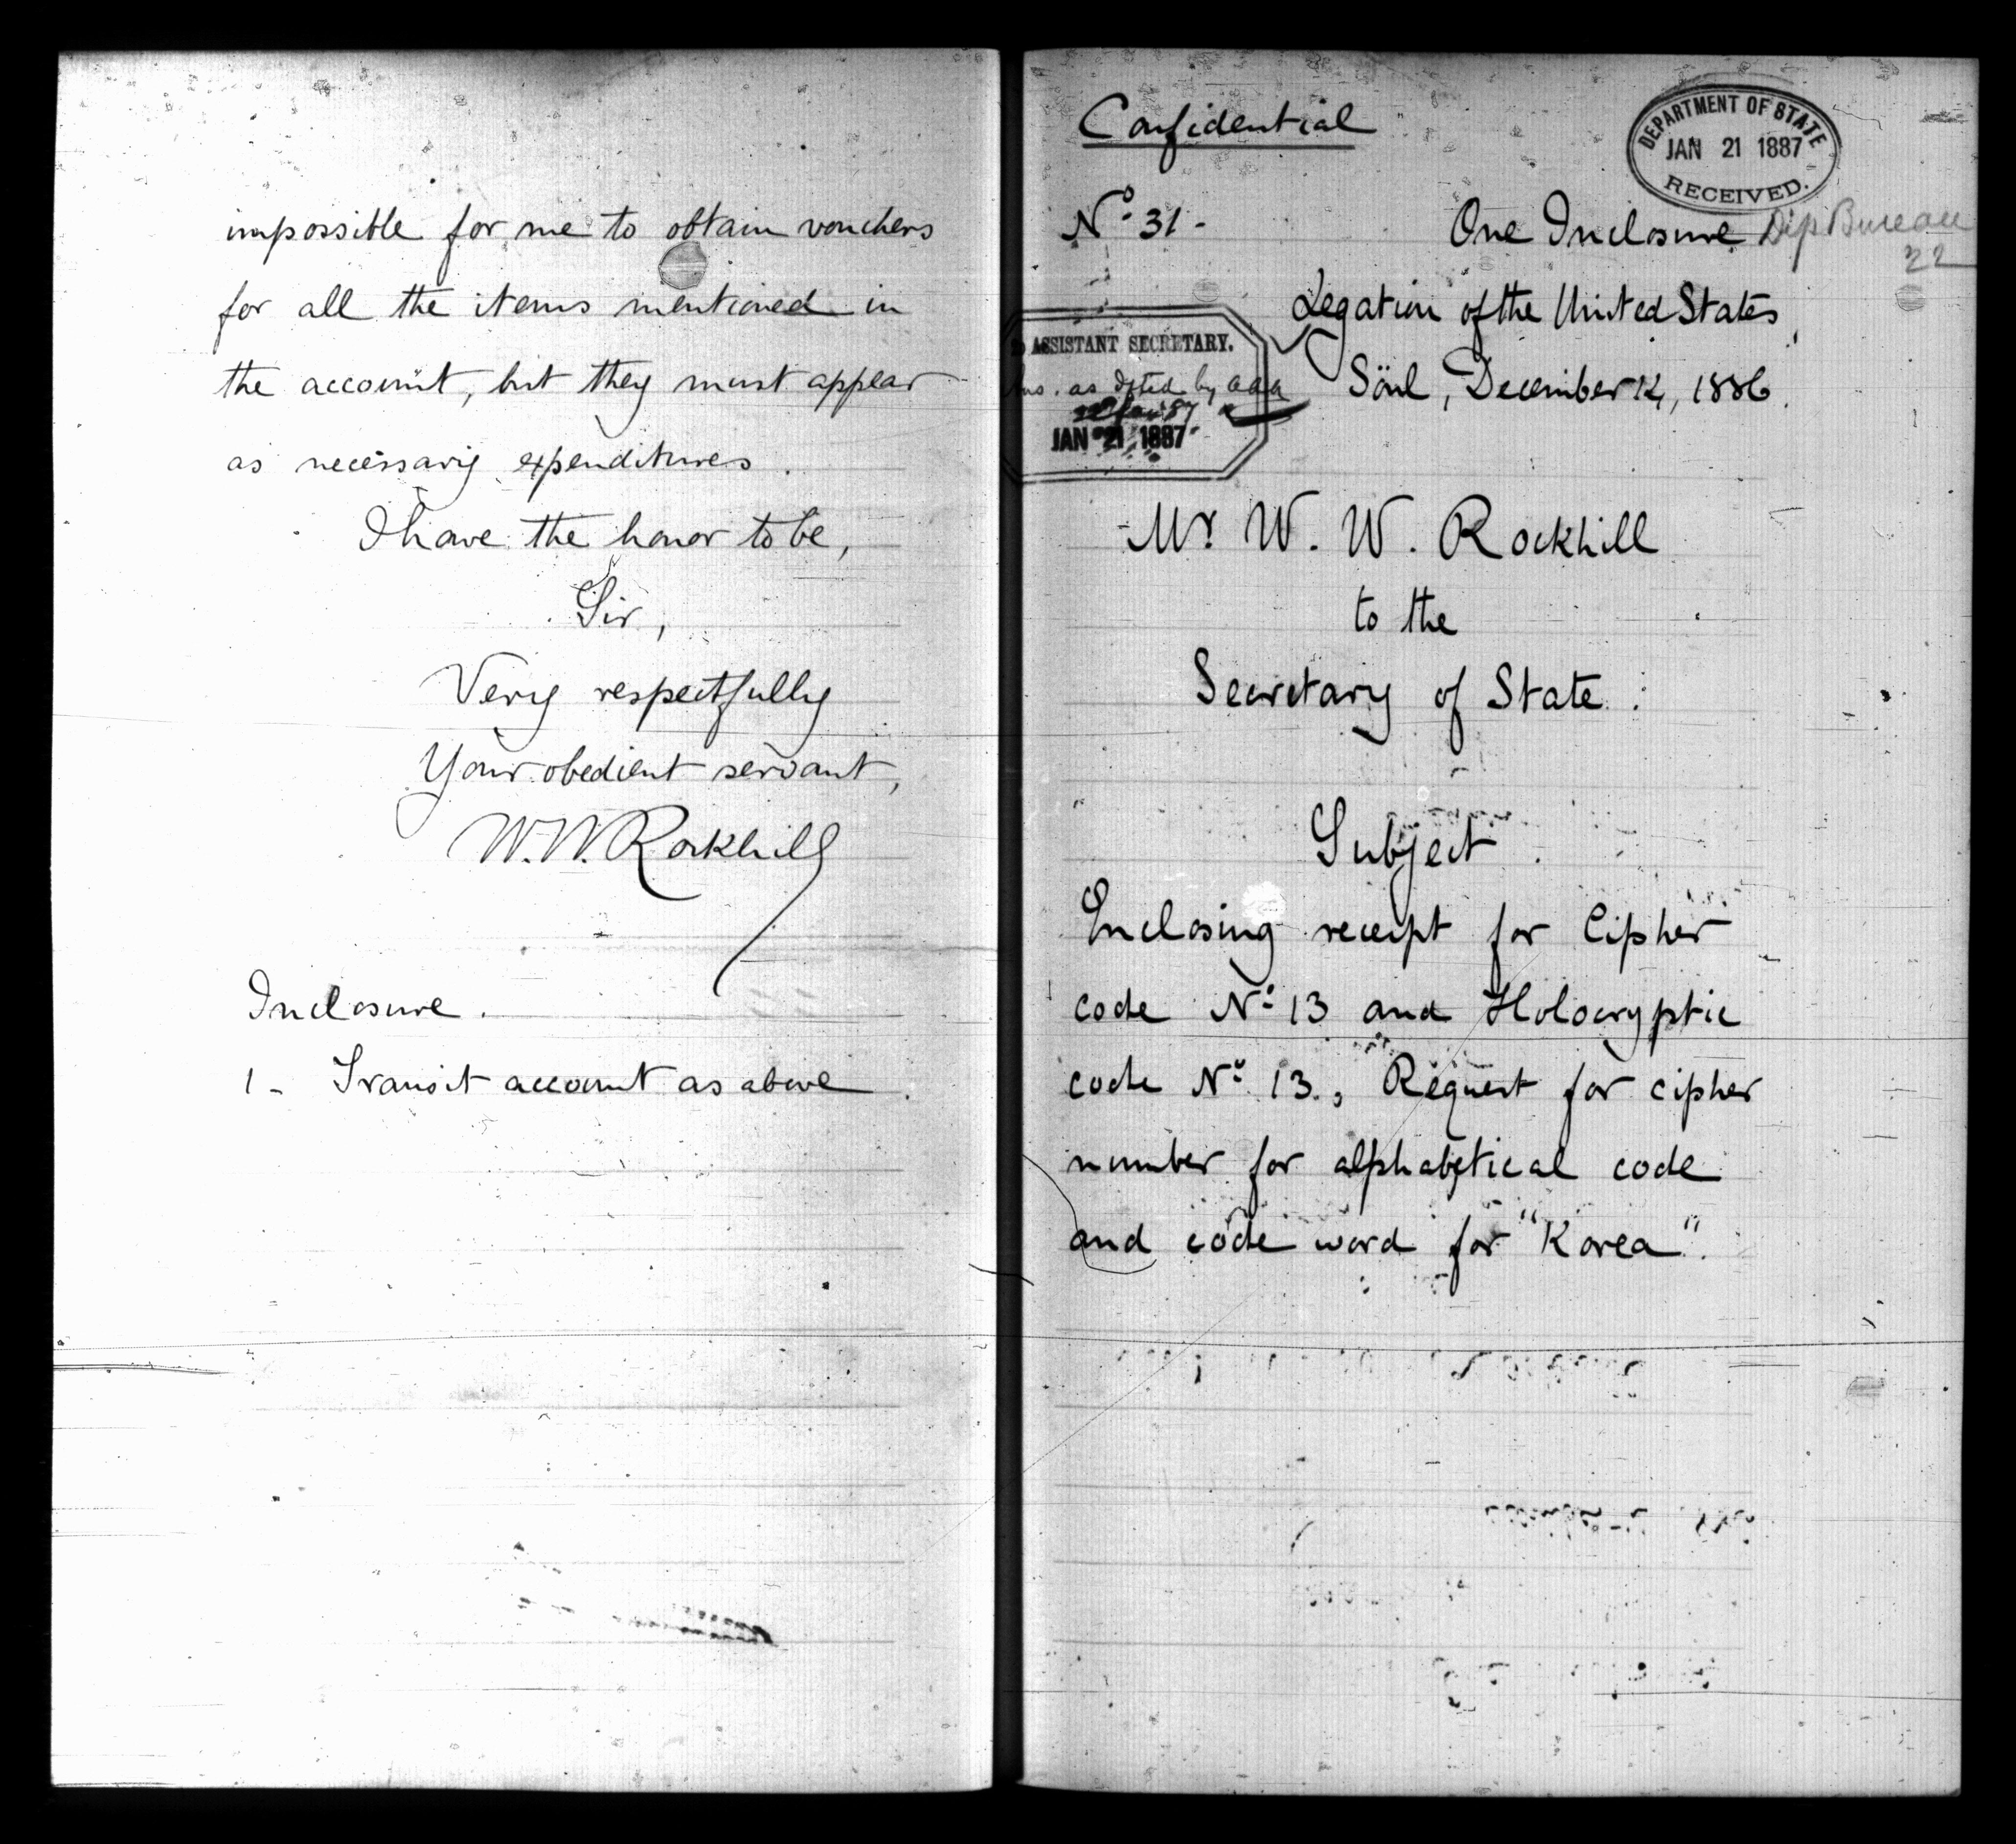 impossible for me to obtain vouchers
for all the items mentioned in
the account, but they must appear
as necessary expenditures.
I have the honor to be,
Sir,
Very respectfully
Your obedient servant,
W.W. Rockhill
Inclosure.
1- Transit account as above.
Confidential
DEPARTMENT OF STATE
JAN 21 1887
RECEIVED.
No. 31-
One Inclosure
Dip Bureau
22
Legation of the United States,
ASSISTANT SECRETARY.
as dfted by aaa
JAN 21 1887
Söul, December 14, 1886.
Mr W. W. Rockhill
to the
Secretary of State:
Subject.
Enclosing receipt for Cipher
code No 13 and Holocryptic
code No 13., Request for cipher
number for alphabetical code
and code word for "Korea".